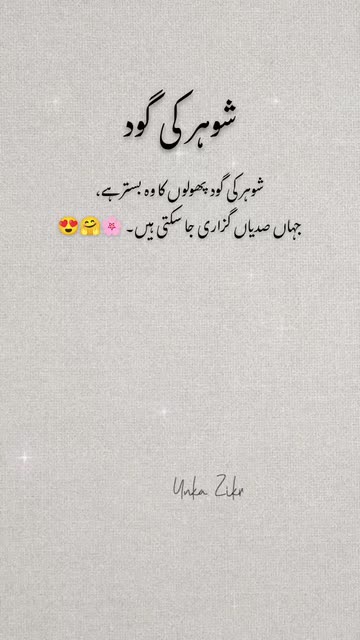 شوہر کی گود
شوہر کی گود پھولوں کا وہ بستر ہے،
جہاں صدیاں گزاری جا سکتی ہیں۔ 🌸🤗😍
Unka Zikr